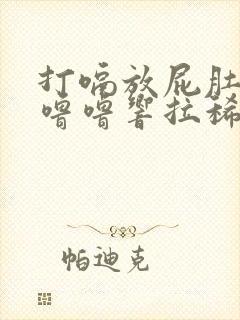 打嗝放屁肚
噜噜响拉稀
帕迪克